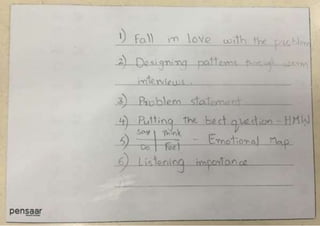 1) Fall in love with the problem
2) Designing patterns through warm
interviews.
3) Problem statement
4) Putting the best question - HMW
5) Say Think
Do Feel - Emotional Map
6) Listening importance
pensaar